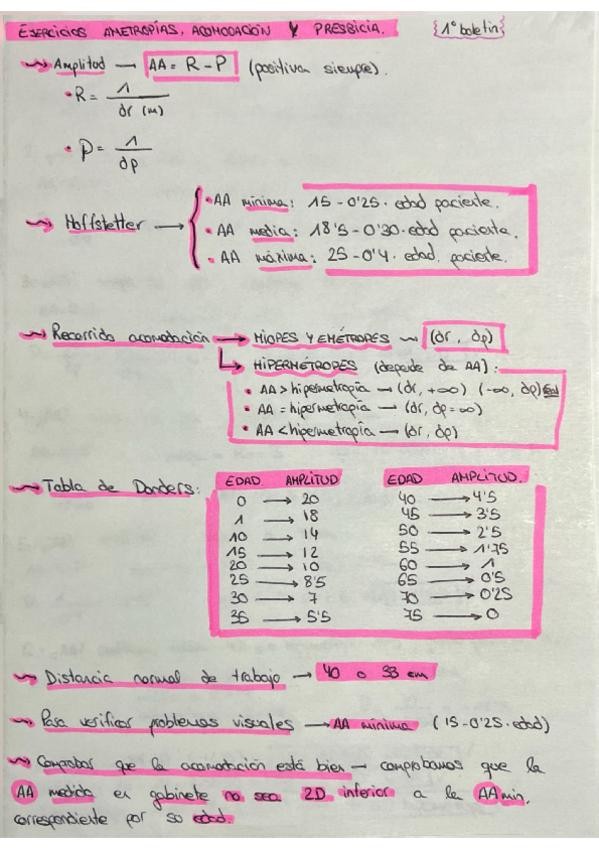 EJERCICIOS AMETROPÍAS, ACOMODACIÓN Y PRESBICIA. {1º boletín}
Amplitud → AA = R - P (positiva siempre).
• R = 1 / dr (m)
• P = 1 / dp
Hoffstetter →
• AA mínima: 15 - 0'25 · edad paciente.
• AA media: 18'5 - 0'30 · edad paciente.
• AA máxima: 25 - 0'4 · edad paciente.
Recorrido acomodación → MIOPES Y EMÉTROPES → (dr, dp)
HIPERMÉTROPES (depende de AA):
• AA > hipermetropía → (dr, +∞) (-∞, dp)
• AA = hipermetropía → (dr, dp = ∞)
• AA < hipermetropía → (dr, dp)
Tabla de Donders:
EDAD AMPLITUD EDAD AMPLITUD.
0 → 20 40 → 4'5
1 → 18 45 → 3'5
10 → 14 50 → 2'5
15 → 12 55 → 1'75
20 → 10 60 → 1
25 → 8'5 65 → 0'5
30 → 7 70 → 0'25
35 → 5'5 75 → 0
Distancia normal de trabajo → 40 o 33 cm
Para verificar problemas visuales → AA mínima (15 - 0'25 · edad)
Comprobar que la acomodación está bien → comprobamos que la
AA medida en gabinete no sea 2D inferior a la AA min.
correspondiente por su edad.